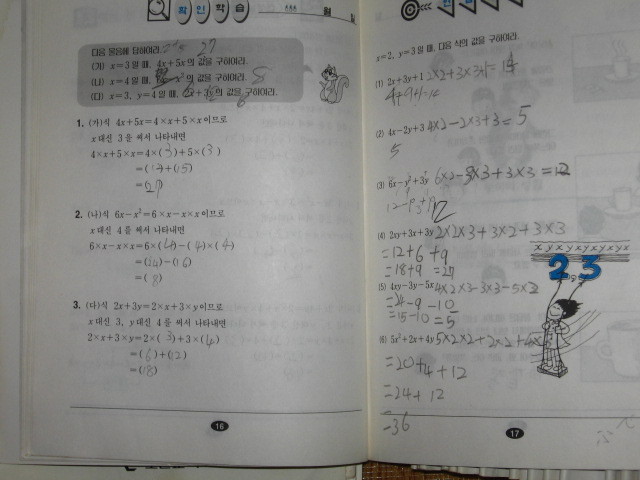 확인학습
월 일
다음 물음에 답하여라. 27
(가) x=3일 때, 4x+5x의 값을 구하여라.
(나) x=4일 때, 의 값을 구하여라. 8
(다) x=3, y=4일 때, 2x+3y의 값을 구하여라.
1. (가)식 4x+5x=4×x+5×x이므로
x대신 3을 써서 나타내면
4×x+5×x=4×(3)+5×(3)
=(12)+(15)
=(27)
2. (나)식 6x-x²=6×x-x×x이므로
x대신 4를 써서 나타내면
6×x-x×x=6×(4)-(4)×(4)
=(24)-(16)
=(8)
3. (다)식 2x+3y=2×x+3×y이므로
x대신 3, y대신 4를 써서 나타내면
2×x+3×y=2×(3)+3×(4)
=(6)+(12)
=(18)
16
x=2, y=3일 때, 다음 식의 값을 구하여라.
(1) 2x+3y+1 2×2+3×3+1=14
4+9+1=14
(2) 4x-2y+3 4×2-2×3+3=5
5
(3) 6x-y²+3y 6×2-3×3+3×3=12
12
(4) 2xy+3x+3y 2×2×3+3×2+3×3
=12+6+9
=18+9=27
xyxyxyxyxyx
2.3
(5) 4xy-3y-5x 4×2×3-3×3-5×2
=24-9-10
=15-10=5
(6) 5x²+2x+4y 5×2×2+2×2+4×3
=20+4+12
=24+12
=36
17